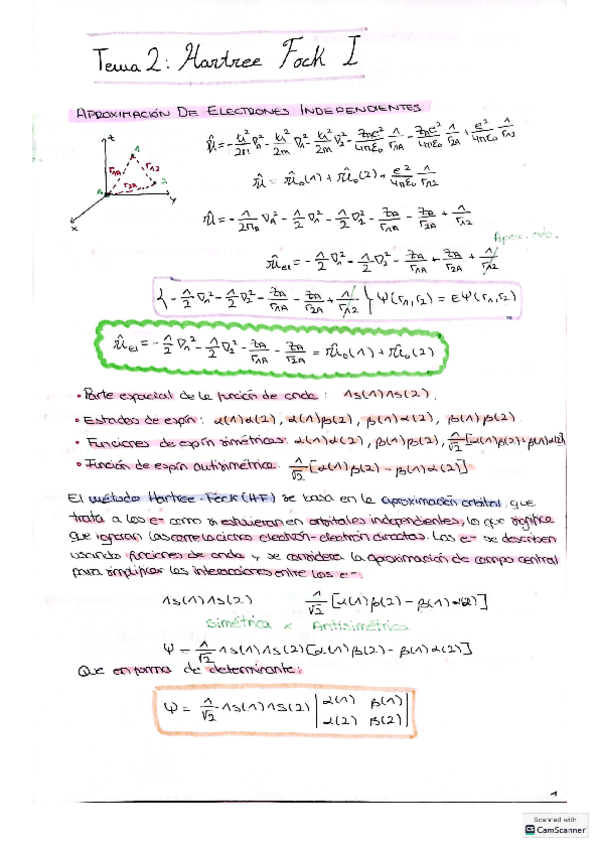 Tema 2: Hartree Fock I
APROXIMACIÓN DE ELECTRONES INDEPENDIENTES
z
1
r1A r12
r2A 2
A
y
x
Ĥ = -ħ²/2M ∇A² - ħ²/2m ∇1² - ħ²/2m ∇2² - ZAe²/4πε0 1/r1A - ZAe²/4πε0 1/r2A + e²/4πε0 1/r12
Ĥ = Ĥ0(1) + Ĥ0(2) + e²/4πε0 1/r12
Ĥ = -1/2MA ∇A² - 1/2 ∇1² - 1/2 ∇2² - ZA/r1A - ZA/r2A + 1/r12
Ĥel = -1/2 ∇1² - 1/2 ∇2² - ZA/r1A + ZA/r2A + 1/r12
{-1/2 ∇1² - 1/2 ∇2² - ZA/r1A - ZA/r2A + 1/r12} Ψ(r1,r2) = EΨ(r1,r2)
Ĥel = -1/2 ∇1² - 1/2 ∇2² - ZA/r1A - ZA/r2A = Ĥ0(1) + Ĥ0(2)
• Parte espacial de la función de onda: 1s(1)1s(2).
• Estados de espín: α(1)α(2), α(1)β(2), β(1)α(2), β(1)β(2).
• Funciones de espín simétricas: α(1)α(2), β(1)β(2), 1/√2 [α(1)β(2)+β(1)α(2)]
• Función de espín antisimétrica: 1/√2 [α(1)β(2) - β(1)α(2)]
El método Hartree-Fock (HF) se basa en la aproximación orbital, que
trata a los e- como si estuvieran en orbitales independientes, lo que significa
que ignoran las correlaciones electrón-electrón directas. Los e- se describen
usando funciones de onda y se considera la aproximación de campo central
para simplificar las interacciones entre los e-.
1s(1)1s(2) 1/√2 [α(1)β(2) - β(1)α(2)]
Simétrica x Antisimétrica
Ψ = 1/√2 1s(1)1s(2)[α(1)β(2) - β(1)α(2)]
Que en forma de determinante:
Ψ = 1/√2 1s(1)1s(2) |α(1) β(1)|
|α(2) β(2)|
1
Scanned with
CS CamScanner